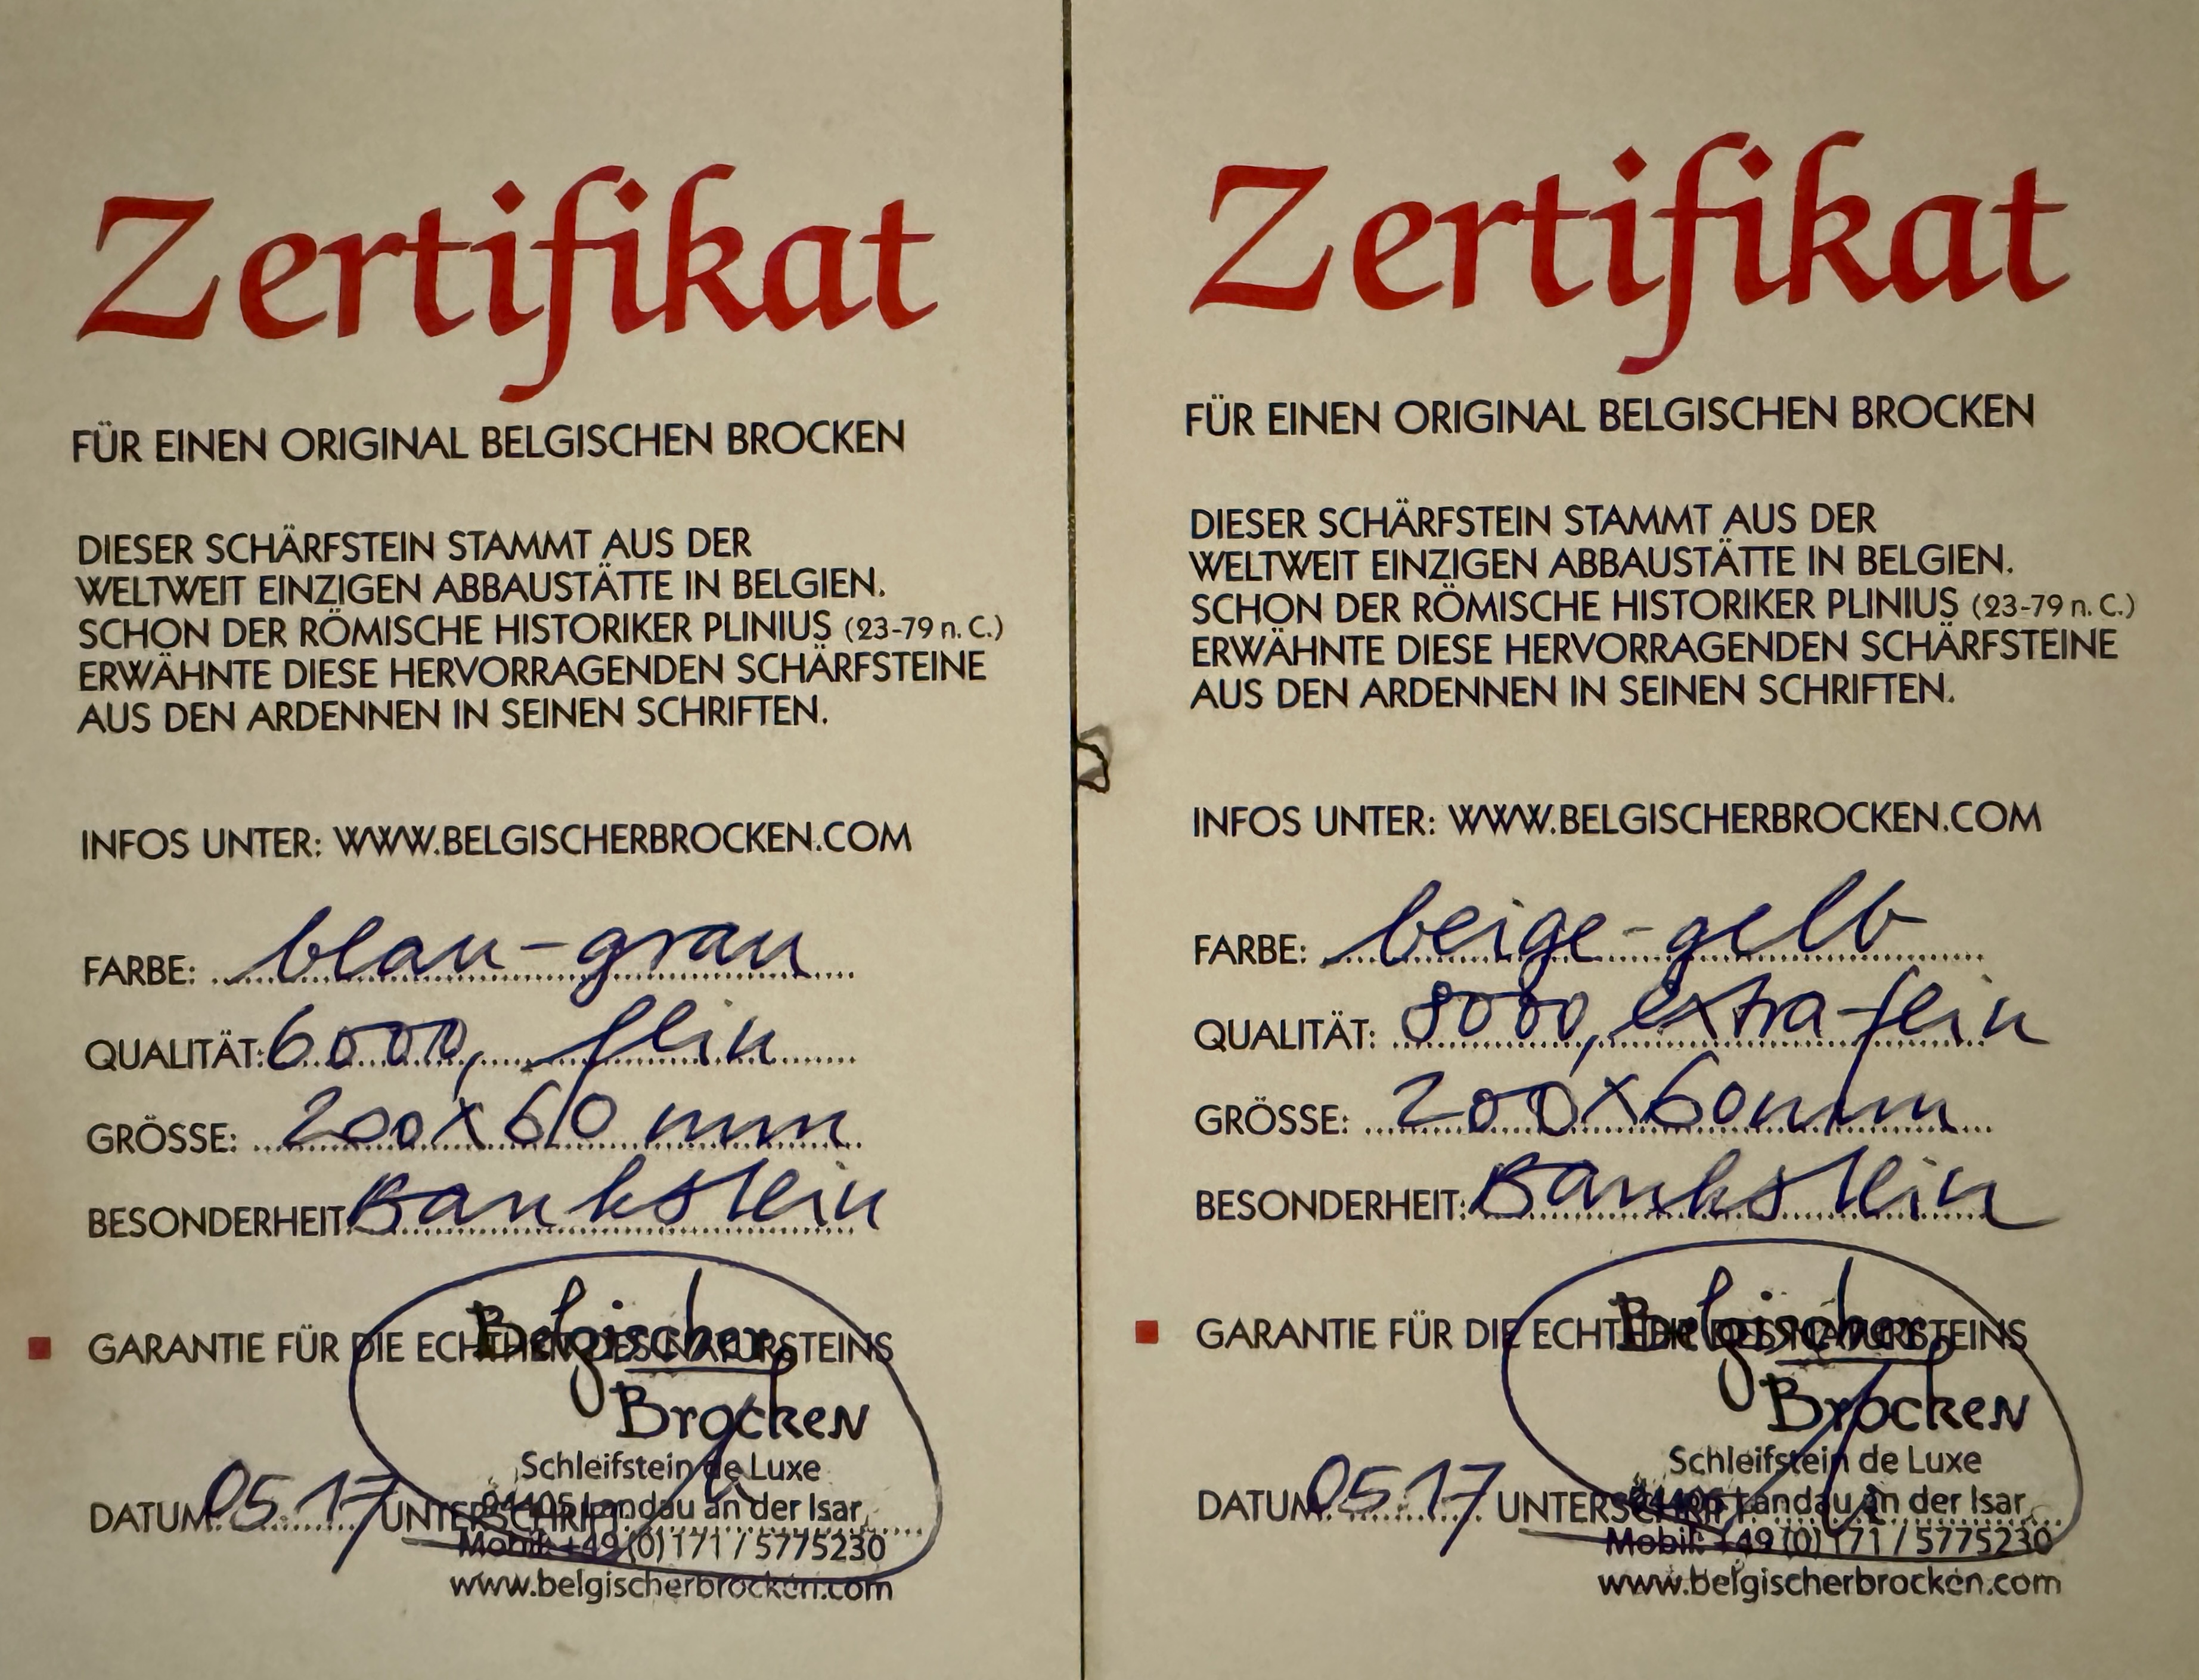 Zertifikat
FÜR EINEN ORIGINAL BELGISCHEN BROCKEN
DIESER SCHÄRFSTEIN STAMMT AUS DER
WELTWEIT EINZIGEN ABBAUSTÄTTE IN BELGIEN.
SCHON DER RÖMISCHE HISTORIKER PLINIUS (23-79 n. C.)
ERWÄHNTE DIESE HERVORRAGENDEN SCHÄRFSTEINE
AUS DEN ARDENNEN IN SEINEN SCHRIFTEN.
INFOS UNTER: WWW.BELGISCHERBROCKEN.COM
FARBE: blau-grau
QUALITÄT: 6000, fein
GRÖSSE: 200x60 mm
BESONDERHEIT: Bankstein
GARANTIE FÜR DIE ECHTHEIT DES NATURSTEINS
Belgischer
Brocken
Schleifstein de Luxe
94405 Landau an der Isar
DATUM: 05.17 UNTERSCHRIFT:
Mobil: +49 (0) 171 / 5775230
www.belgischerbrocken.com
Zertifikat
FÜR EINEN ORIGINAL BELGISCHEN BROCKEN
DIESER SCHÄRFSTEIN STAMMT AUS DER
WELTWEIT EINZIGEN ABBAUSTÄTTE IN BELGIEN.
SCHON DER RÖMISCHE HISTORIKER PLINIUS (23-79 n. C.)
ERWÄHNTE DIESE HERVORRAGENDEN SCHÄRFSTEINE
AUS DEN ARDENNEN IN SEINEN SCHRIFTEN.
INFOS UNTER: WWW.BELGISCHERBROCKEN.COM
FARBE: beige-gelb
QUALITÄT: 8000, extra-fein
GRÖSSE: 200x60mm
BESONDERHEIT: Bankstein
GARANTIE FÜR DIE ECHTHEIT DES NATURSTEINS
Belgischer
Brocken
Schleifstein de Luxe
94405 Landau an der Isar
DATUM: 05.17 UNTERSCHRIFT:
Mobil: +49 (0) 171 / 5775230
www.belgischerbrocken.com